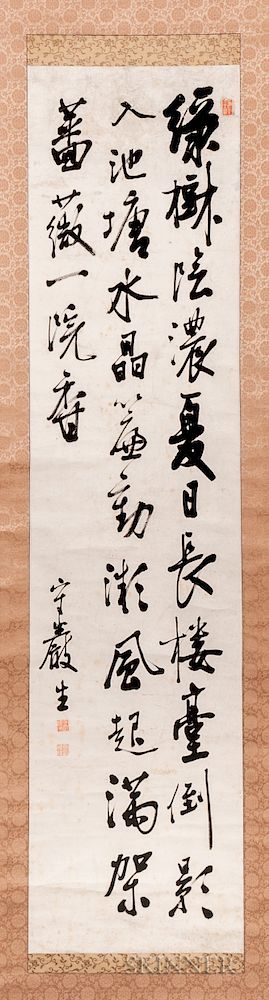 綠樹陰濃夏日長楼臺倒影
入池塘水晶簾動微風起満架
薔薇一院香
守巖生
SKINNER